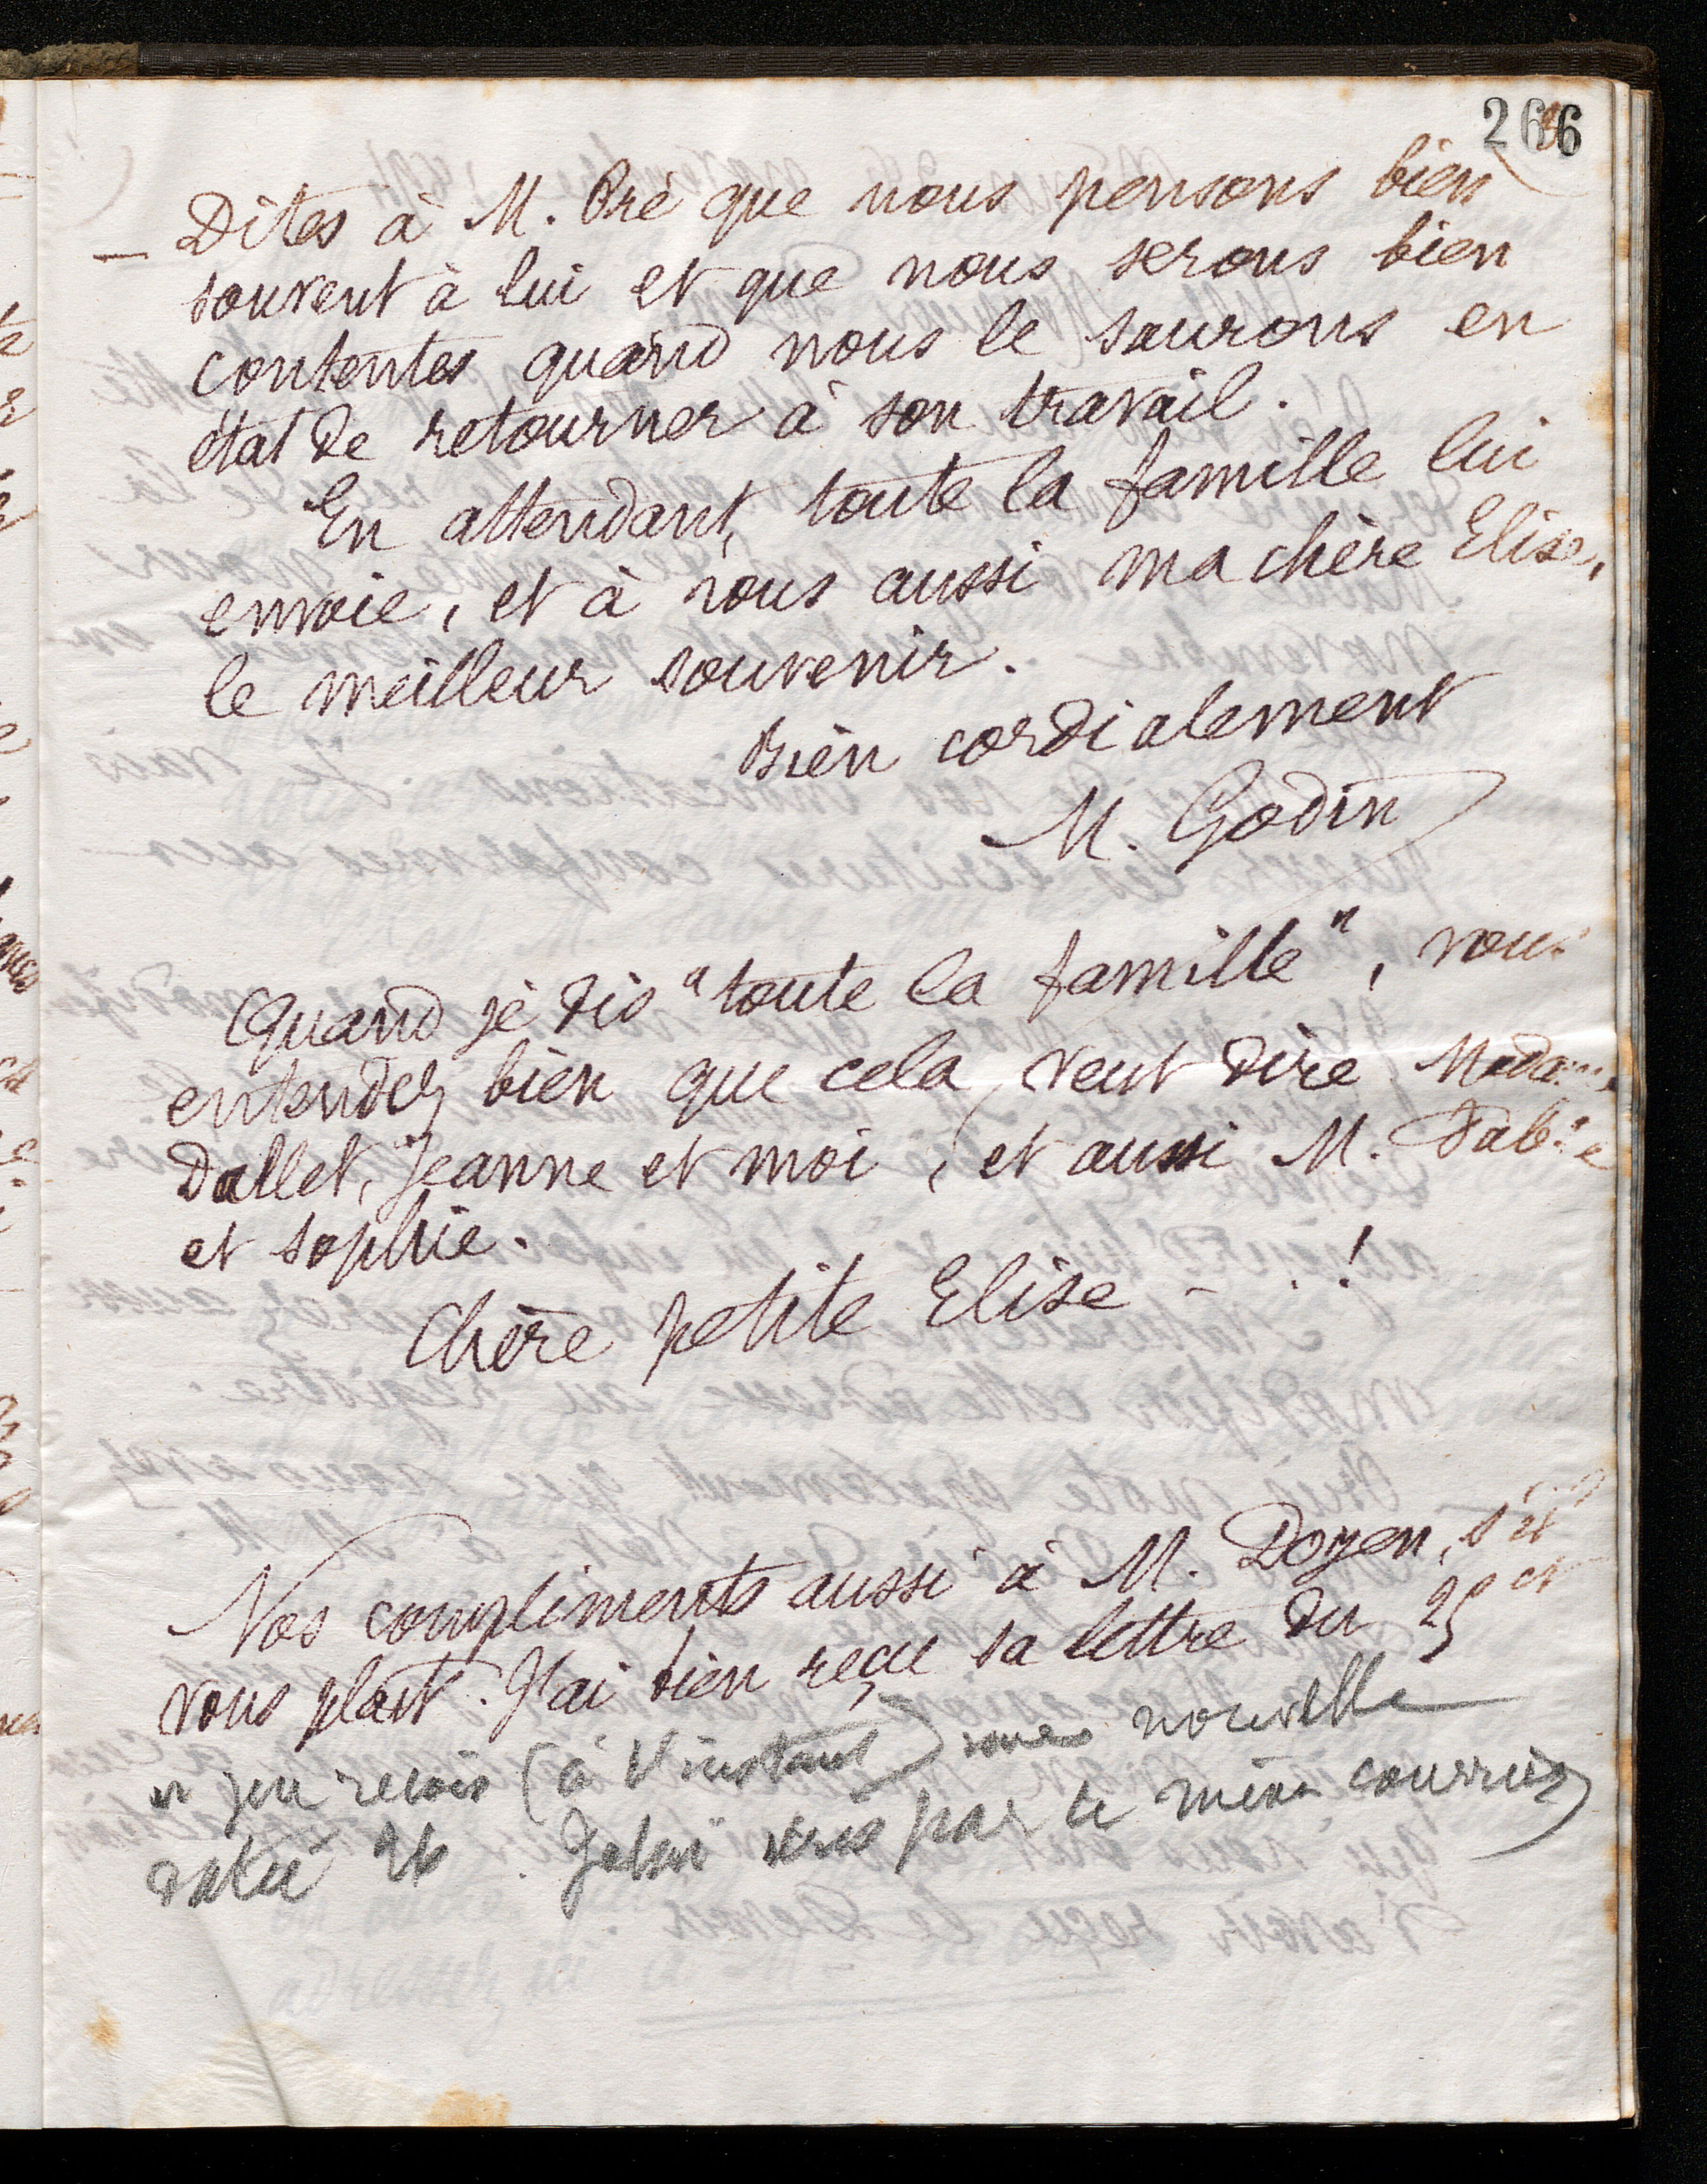 266
— Dites à M. Pré que nous pensons bien
souvent à lui et que nous serons bien
contentes quand nous le saurons en
état de retourner à son travail.
En attendant, toute la famille lui
envoie, et à vous aussi ma chère Elise,
le meilleur souvenir.
Bien cordialement
M. Godin
Quand je dis "toute la famille", vous
entendez bien que cela veut dire Madame
Dallet, Jeanne et moi, et aussi M. Fabre
et Sophie.
Chère petite Elise - . . !
Nos compliments aussi à M. Doyen, s'il
vous plait. J'ai bien reçu sa lettre du 25 ct
et j'en reçois (à l'instant) une nouvelle
datée 26. Je lui écris par le même courrier